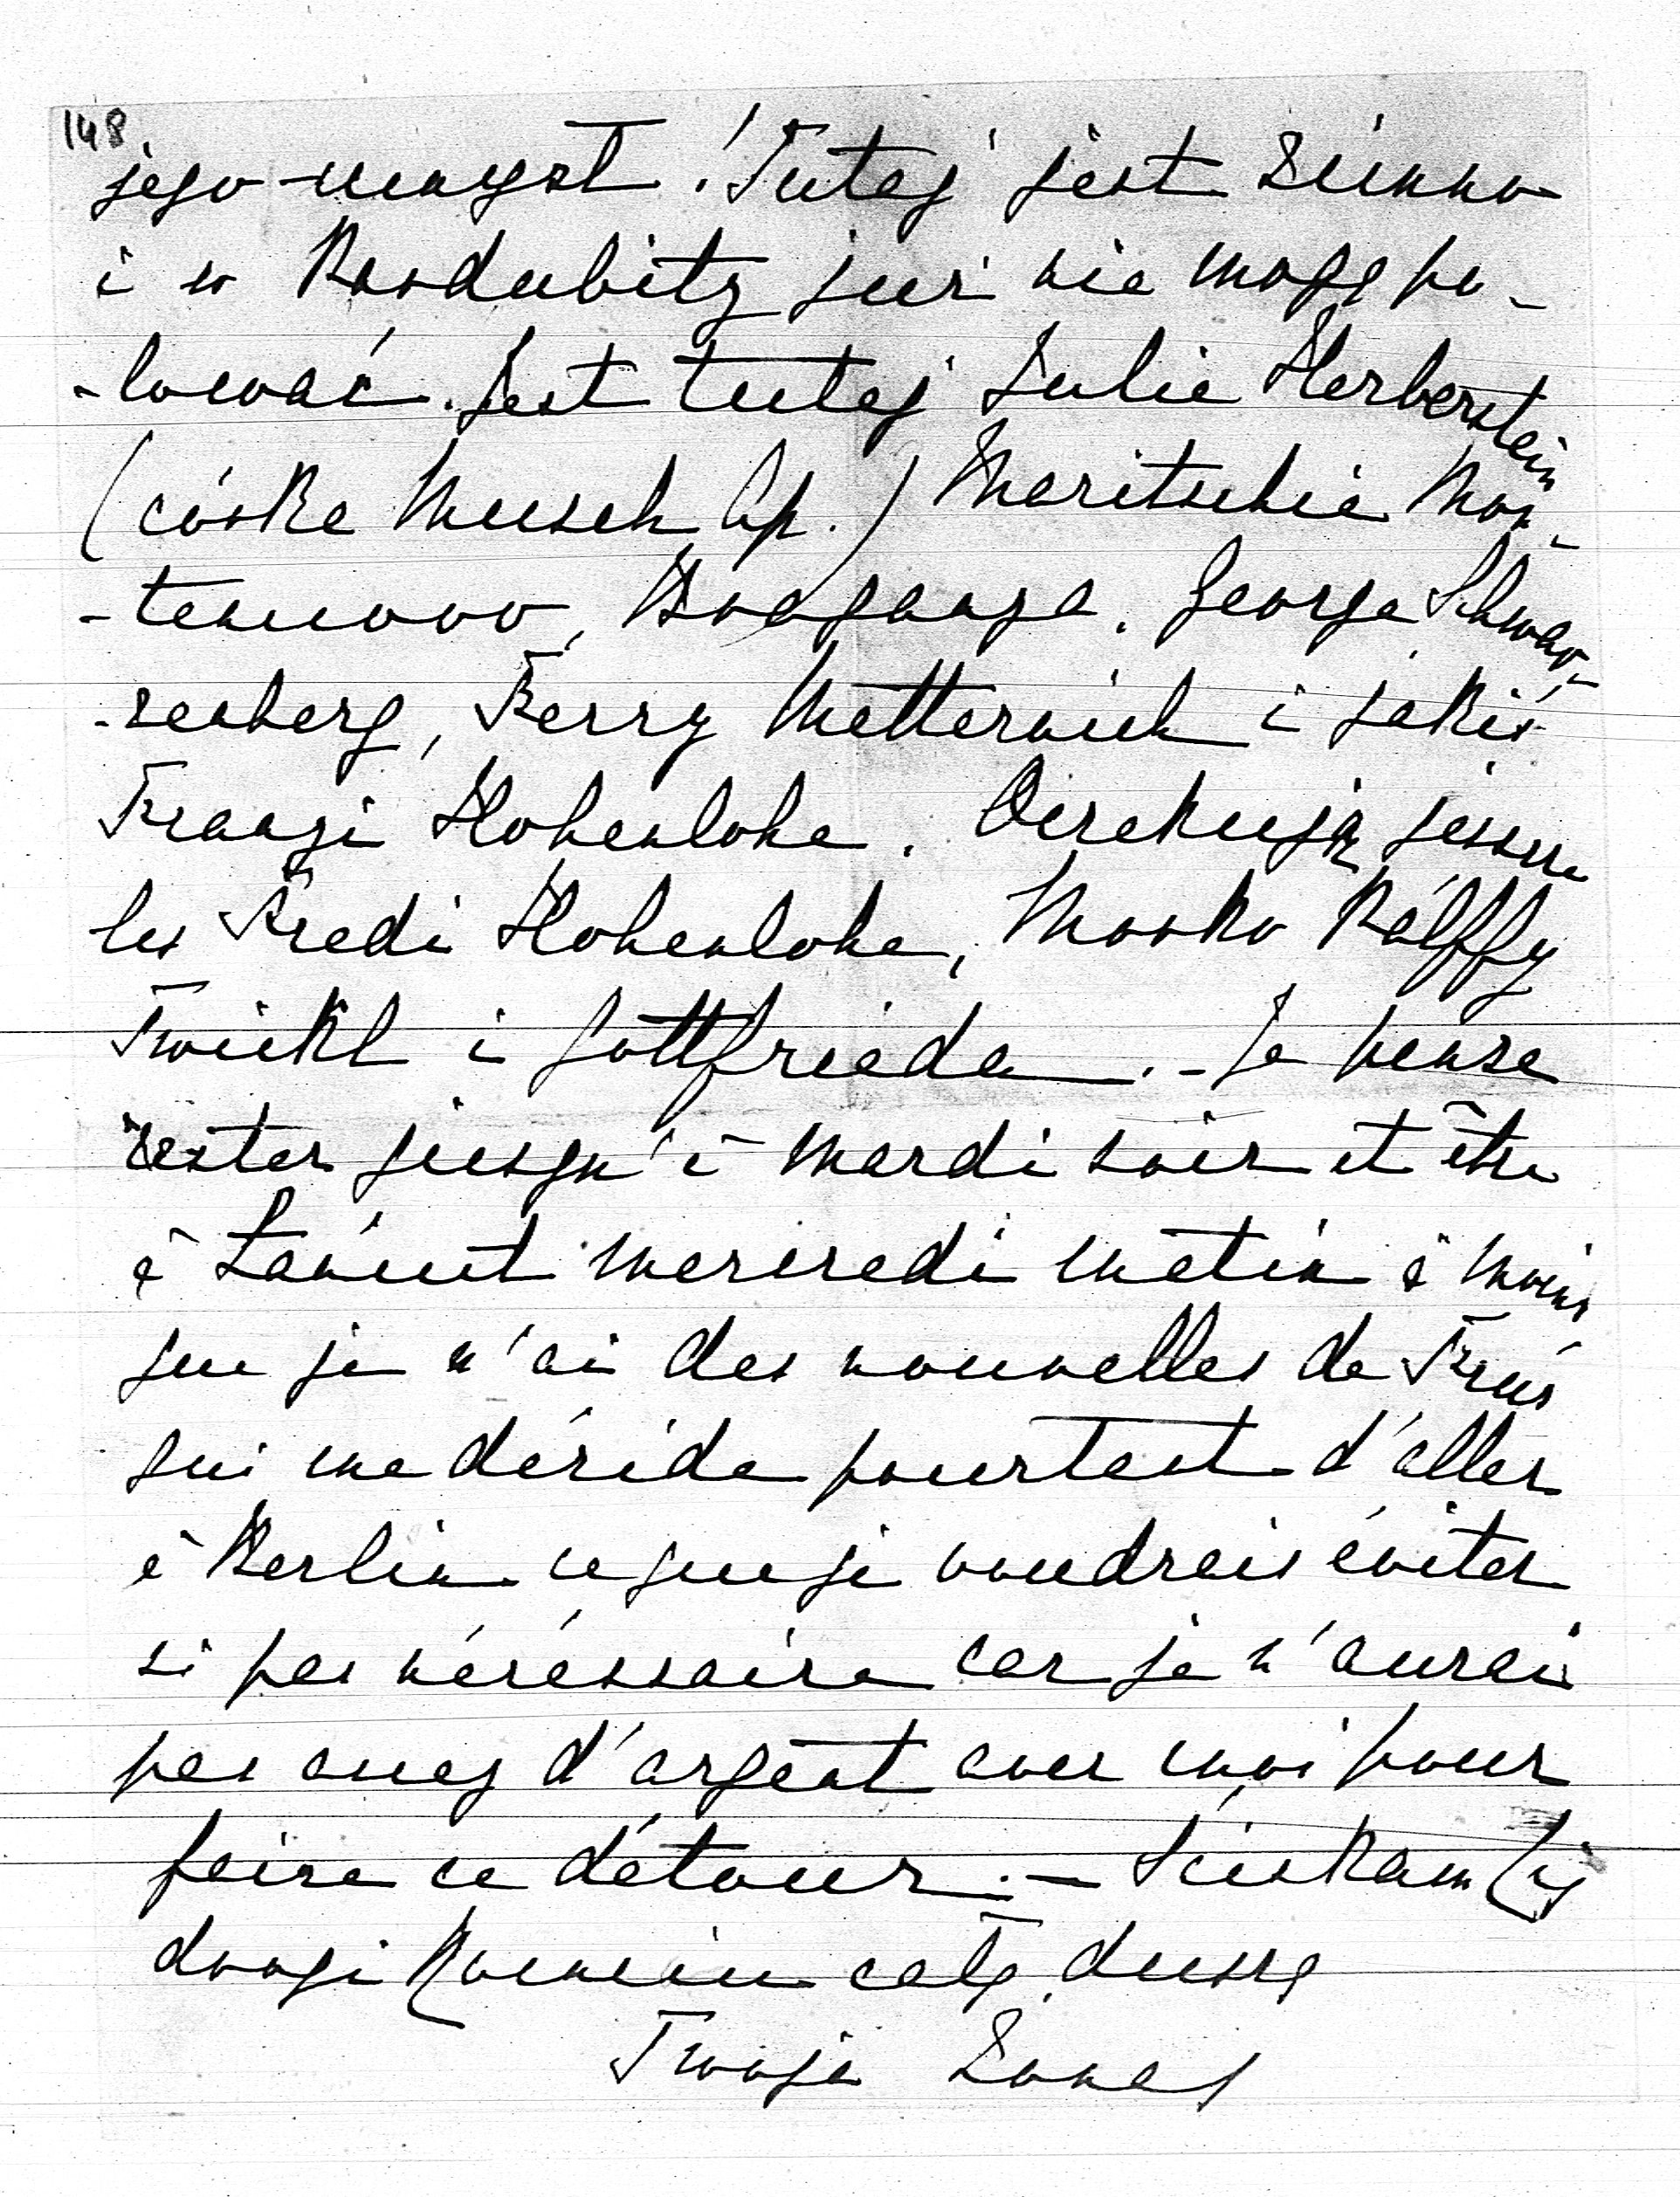 148
jego umysł! Tutaj jest zimno
i w Pardubitz już nie mogę po-
-lować. Jest tutaj Julie Herberstein
(córka Mensch Ap.) Maritschie Mon-
-tenuovo, Braganza, George Schwar-
-zenberg, Ferry Metternich i jakiś
Franzi Hohenlohe. Oczekują jeszcze
les Fredi Hohenlohe, Marko Pálffy
Twickl i Gottfrieda. - Je pense
rester jusqu'à mardi soir et être
à Łańcut mercredi matin à moins
que je n'ai des nouvelles de Fruś
qui me décide pourtant d'aller
à Berlin ce que je voudrais éviter
si pas nécéssaire car je n'aurai
pas assez d'argent avec moi pour
faire ce détour. — Ściskam Cię
drogi Romciu całą duszą
Twoja Żona